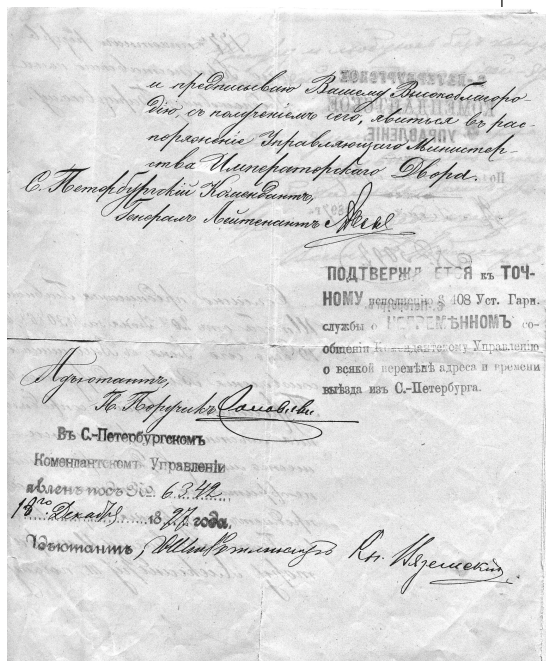 и предписываю Вашему Высокоблагоро
дію, съ полученіемъ сего, явиться въ рас-
поряженіе Управляющаго Министер-
ства Императорскаго Двора.
С. Петербургскій Комендантъ,
Генералъ Лейтенантъ
ПОДТВЕРЖДАЕТСЯ къ ТОЧ-
НОМУ исполненію § 408 Уст. Гарн.
службы о НЕПРЕМѢННОМЪ со-
общеніи Комендантскому Управленію
о всякой перемѣнѣ адреса и времени
выѣзда изъ С.-Петербурга.
Адъютантъ,
П. Поручикъ
Въ С.-Петербургскомъ
Комендантскомъ Управленіи
явленъ подъ № 6342
Декабря 1897 года.
Адъютантъ, Кн. Вяземскій